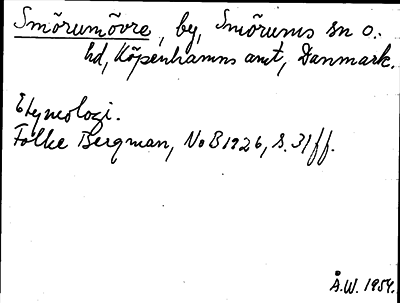 Smörumövre, by, Smörums sn o.
hd, Köpenhamns amt, Danmark.
Etymologi.
Folke Bergman, NoB 1926, s. 31 ff.
Å.W. 1954.